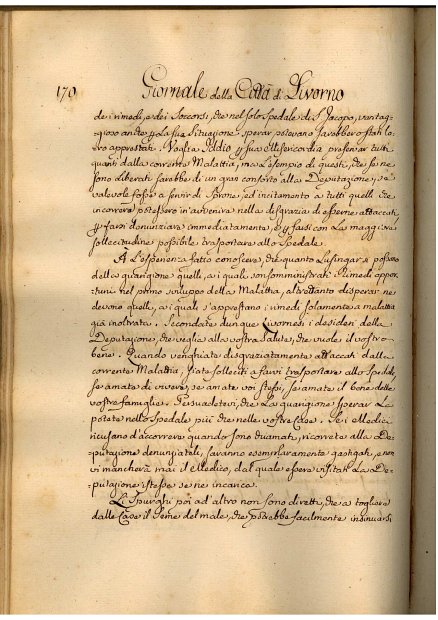 170 Giornale della Città di Livorno
dei rimedi, e dei soccorsi, che nel solo Spedale di S. Jacopo, vantag-
=gioso anche p la sua Situazione sperar potevano sarebbero stati lo-
ro apprestati. Voglia Iddio p sua Misericordia preservar tutti
quanti dalla corrente Malattia, ma l'esempio di questi, che se ne
sono liberati sarebbe di un gran conforto alla Deputazione, se
valevole fosse a servir di Sprone, ed incitamento a tutti quelli che
incorrere potessero in avvenire nella disgrazia di esserne attaccati
p farsi denunziare immediatamente, e p farsi con la maggiore
sollecitudine possibile trasportare allo Spedale.
À l'esperienza fatto conoscere, che quanto lusingar si possono
della guarigione quelli, a i quali son somministrati Rimedi oppor
tuni nel primo sviluppo della Malattia, altrettanto disperar ne
devono quelli, a i quali s'apprestano i rimedi solamente a malattia
già inoltrata. Secondate dunque Livornesi i desideri della
Deputazione, che veglia alla vostra Salute, che vuole il vostro
bene. Quando venghiate disgraziatamente attaccati dalla
corrente Malattia, siate solleciti a farvi trasportare allo Spedale,
se amate di vivere, se amate voi stessi, se amate il bene delle
vostre famiglie. Persuadetevi, che la guarigione sperar la
potete nello Spedale più che nelle vostre Case. Se i Medici
ricusano d'accorrere quando sono chiamati, ricorrete alla De-
=putazione denunziateli, saranno esemplarmente gastigati, e non
vi mancherà mai il Medico, dal quale essere visitati. La De-
=putazione istessa se ne incarica.
Li Spurghi poi ad altro non sono diretti, che a togliere
dalle Case il seme del male, che potrebbe facilmente insinuarsi